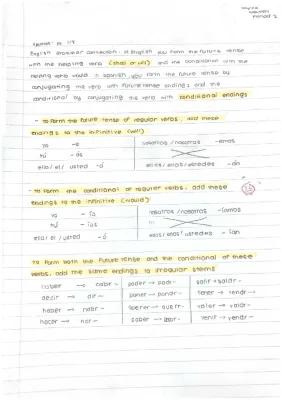 English grammar connection: in English you form the future tense
with the helping verb (shall or will) and the conditional with the
helping verb would. in spanish you form the future tense by
conjugating the verb with future tense endings and the
conditional by conjugating the verb with conditional endings
- to form the future tense of regular verbs, add these
endings to the infinitive (will)
yo -é nosotros / nosotras -emos
tú -ás
ella / él / usted -á ellos/ellas/ustedes -án
- to form the conditional of regular verbs, add these
endings to the infinitive (would)
yo -ía nosotros / nosotras -íamos
tú -ías
ella / él / usted -ía ellos/ellas/ustedes -ían
to form both the future tense and the conditional of these
verbs, add the same endings to irregular stems
caber → cabr- poder → podr- salir → saldr-
decir → dir- poner → pondr- tener → tendr-
haber → habr- querer → querr- valer → valdr-
hacer → har- saber → sabr- venir → vendr-